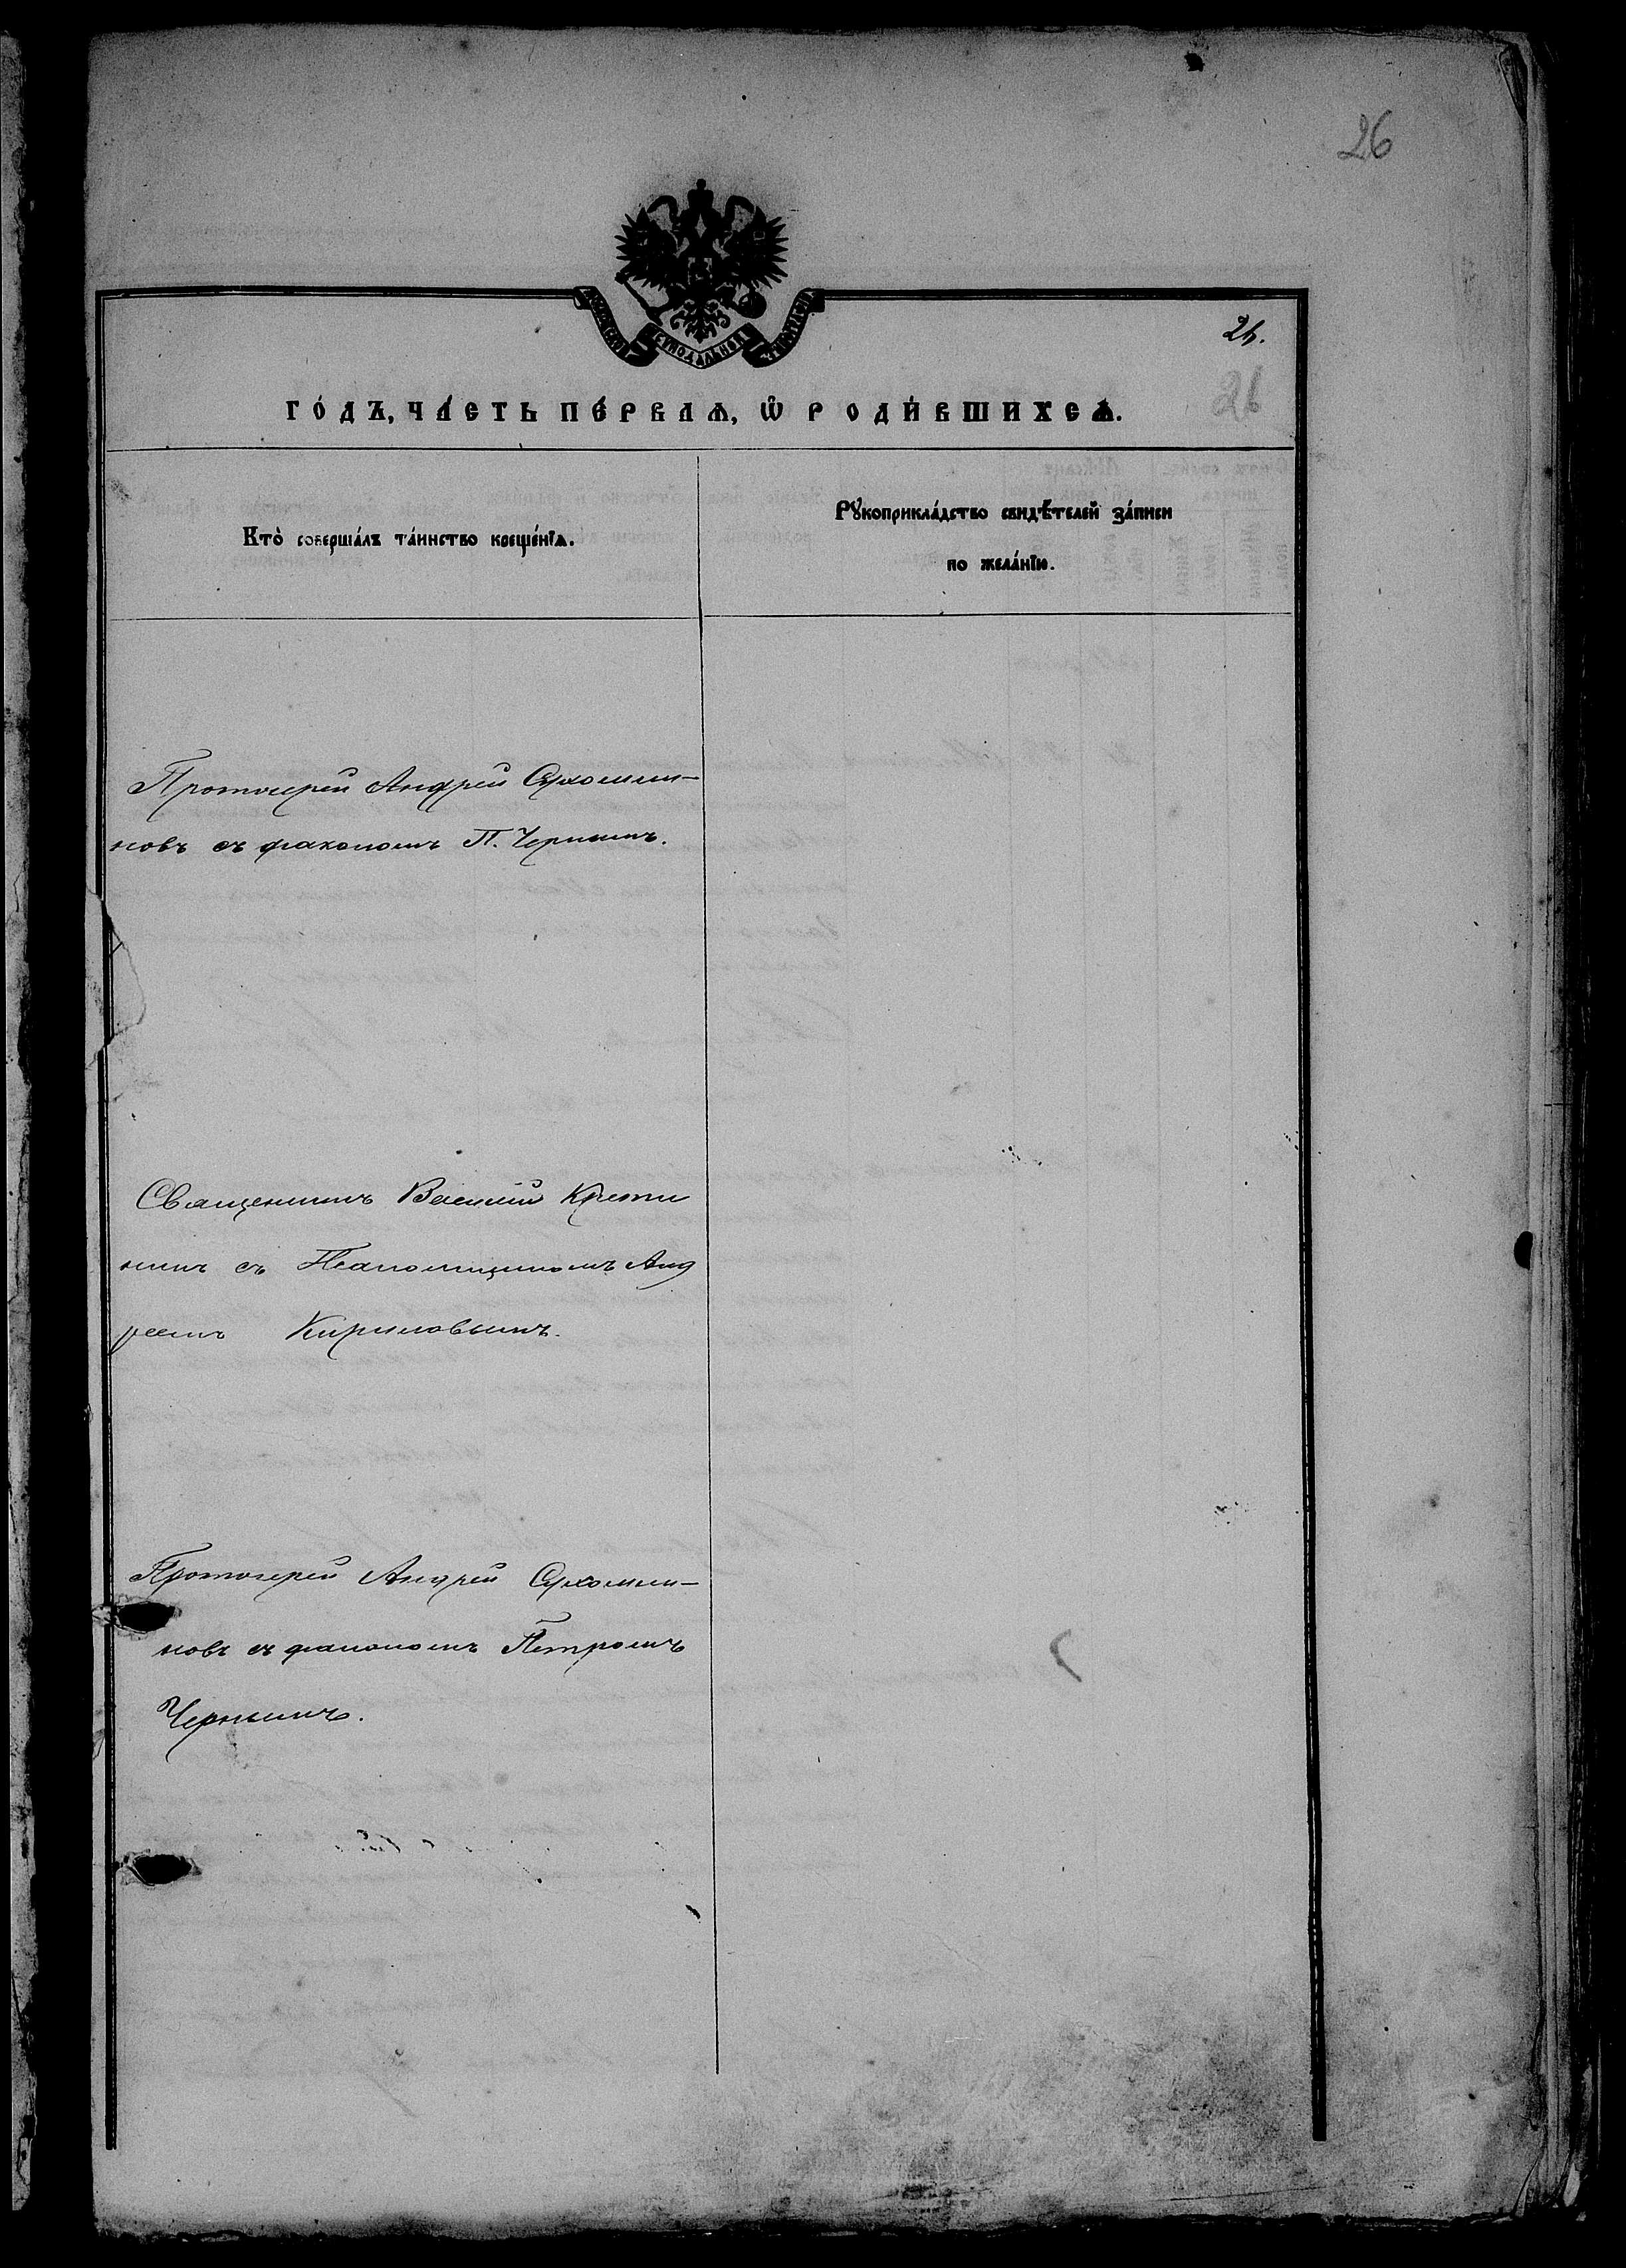 26
МОСКОВСКОЙ СѴНОДАЛЬНОЙ ТИПОГРАФІИ
26.
26
ГО́ДЪ, ЧА́СТЬ ПЕ́РВАѦ, Ѡ҆ РОДИ́ВШИХСѦ.
Кто̀ соверша́лъ та́инство креще́нїѧ.
Рꙋкоприкла́дство свидѣ́телей за́писи
по жела́нїю.
Протоіерей Андрей Сухомли-
новъ съ діакономъ П. Чернымъ.
Священникъ Василій
нинъ съ Псаломщикомъ Анд
реемъ Кириловымъ.
Протоіерей Андрей Сухомли-
новъ съ діакономъ Петромъ
Чернымъ.